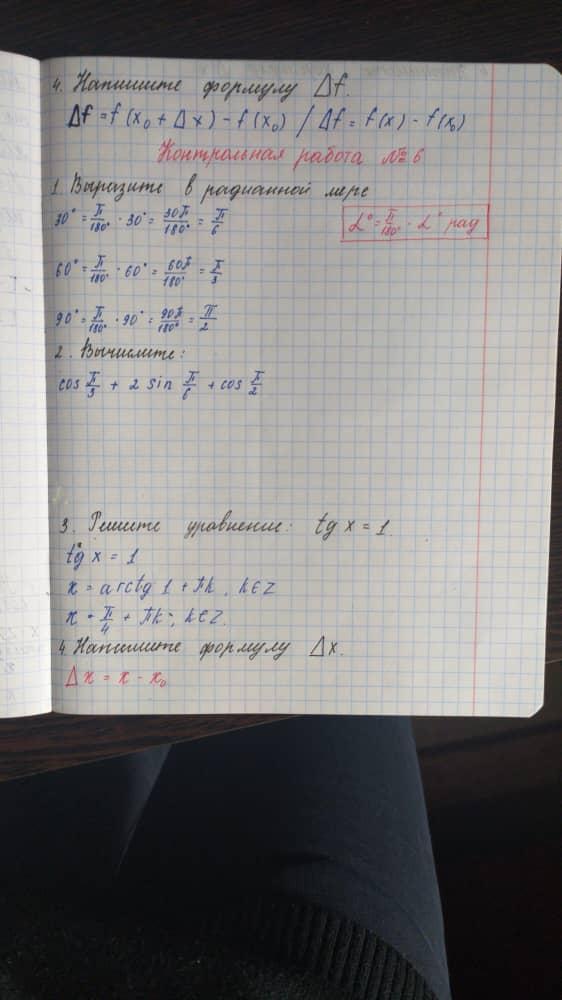 4. Напишите формулу Δf.
Δf = f(x₀ + Δx) - f(x₀) / Δf = f(x) - f(x₀)
Контрольная работа № 6
1. Выразите в радианной мере
30° = π/180° · 30° = 30π/180° = π/6
α° = π/180° · α° рад
60° = π/180° · 60° = 60π/180° = π/3
90° = π/180° · 90° = 90π/180° = π/2
2. Вычислите:
cos π/3 + 2 sin π/6 + cos π/2
3. Решите уравнение: tg x = 1.
tg x = 1
x = arctg 1 + πk, k∈Z
x = π/4 + πk, k∈Z.
4. Напишите формулу Δx.
Δx = x - x₀